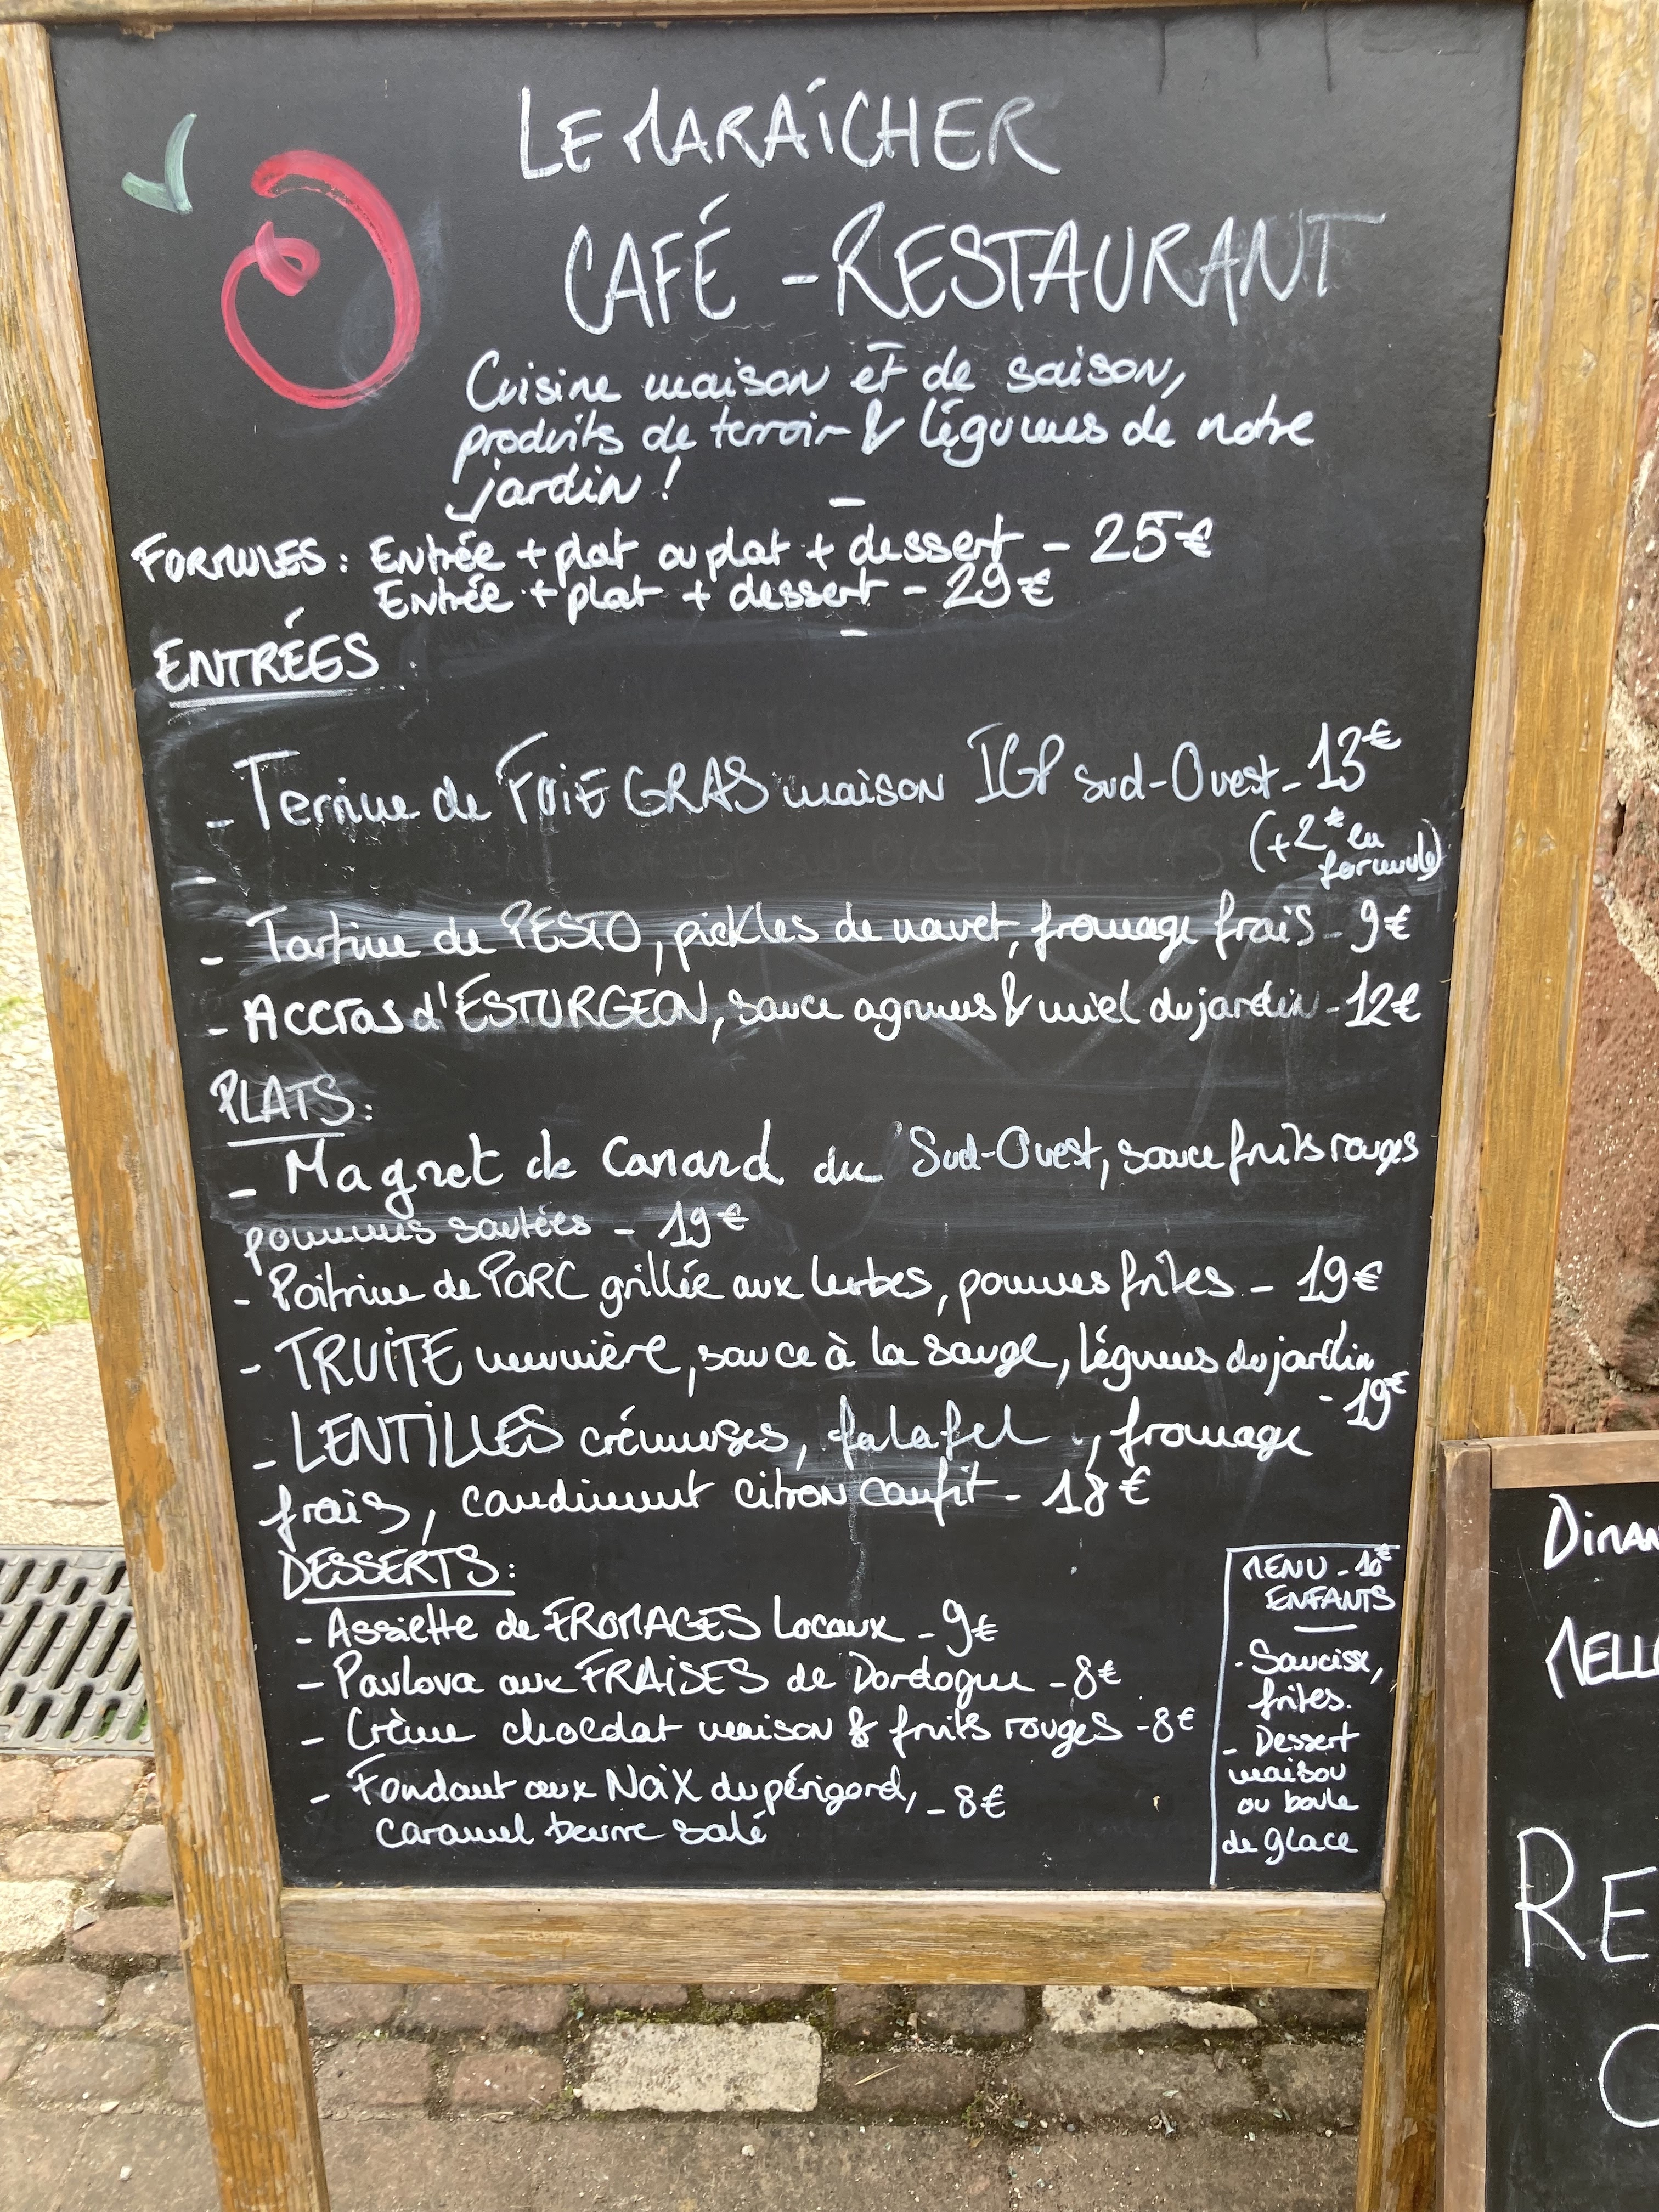 LE MARAÎCHER
CAFÉ - RESTAURANT
Cuisine maison et de saison,
produits de terroir & légumes de notre
jardin !
FORMULES : Entrée + plat ou plat + dessert - 25€
Entrée + plat + dessert - 29€
ENTRÉES :
- Terrine de FOIE GRAS maison IGP Sud-Ouest - 13€
(+2€ en
formule)
- Tartine de PESTO, pickles de navet, fromage frais - 9€
- Accras d'ESTURGEON, sauce agrumes & miel du jardin - 12€
PLATS :
- Magret de Canard du Sud-Ouest, sauce fruits rouges
pommes sautées - 19€
- Poitrine de PORC grillée aux herbes, pommes frites - 19€
- TRUITE meunière, sauce à la sauge, légumes du jardin
- 19€
- LENTILLES crémeuses, falafel, fromage
frais, condiment citron confit - 18€
DESSERTS :
- Assiette de FROMAGES Locaux - 9€
- Pavlova aux FRAISES de Dordogne - 8€
- Crème chocolat maison & fruits rouges - 8€
- Fondant aux NOIX du périgord, - 8€
caramel beurre salé
MENU - 10€
ENFANTS
- Saucisse,
frites.
- Dessert
maison
ou boule
de glace
DIMAN
MELLO
RE